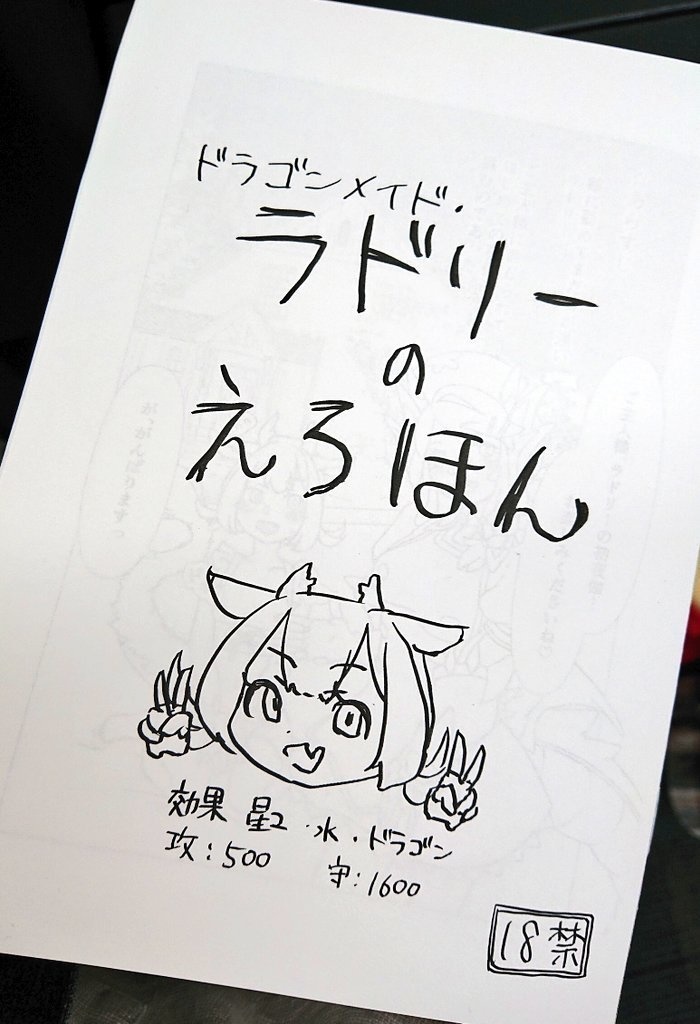 ドラゴンメイド・
ラドリー
の
えろほん
効果 星2・水・ドラゴン
攻:500 守:1600
18禁